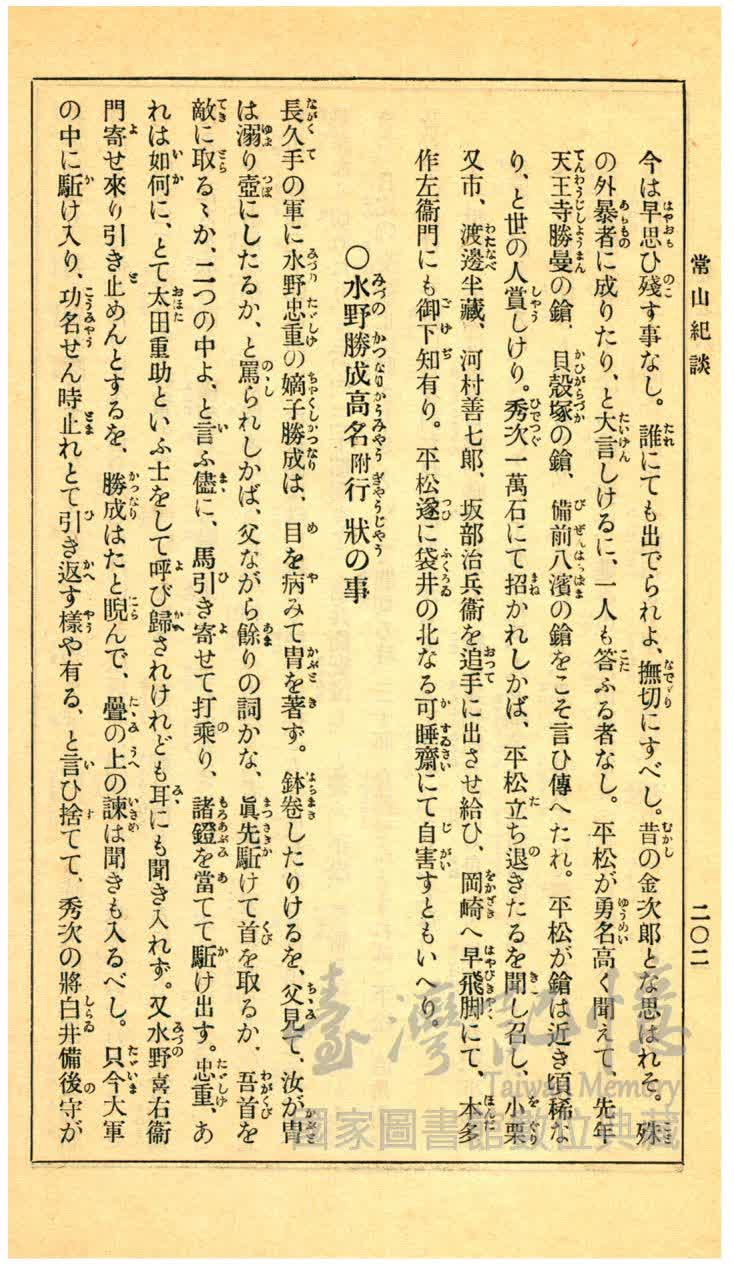 常山紀談
二〇二
今は早思ひ殘す事なし。誰にても出でられよ、撫切にすべし。昔の金次郎とな思はれそ。殊
の外暴者に成りたり、と大言しけるに、一人も答ふる者なし。平松が勇名高く聞えて、先年
天王寺勝曼の鎗、貝殻塚の鎗、備前八濱の鎗をこそ言ひ傳へたれ。平松が鎗は近き頃稀な
り、と世の人賞しけり。秀次一萬石にて招かれしかば、平松立ち退きたるを聞し召し、小栗
又市、渡邊半藏、河村善七郎、坂部治兵衞を追手に出させ給ひ、岡崎へ早飛脚にて、本多
作左衞門にも御下知有り。平松遂に袋井の北なる可睡齋にて自害すともいへり。
〇水野勝成高名附行狀の事
長久手の軍に水野忠重の嫡子勝成は、目を病みて冑を著ず。鉢卷したりけるを、父見て、汝が冑
は溺り壺にしたるか、と罵られしかば、父ながら餘りの詞かな、眞先駈けて首を取るか、吾首を
敵に取るゝか、二つの中よ、と言ふ儘に、馬引き寄せて打乘り、諸鐙を當てて駈け出す。忠重、あ
れは如何に、とて太田重助といふ士をして呼び歸されけれども耳にも聞き入れず。又水野喜右衞
門寄せ來り引き止めんとするを、勝成はたと睨んで、疊の上の諫は聞きも入るべし。只今大軍
の中に駈け入り、功名せん時止れとて引き返す樣や有る、と言ひ捨てて、秀次の將白井備後守が
臺灣記憶
Taiwan Memory
國家圖書館數位典藏